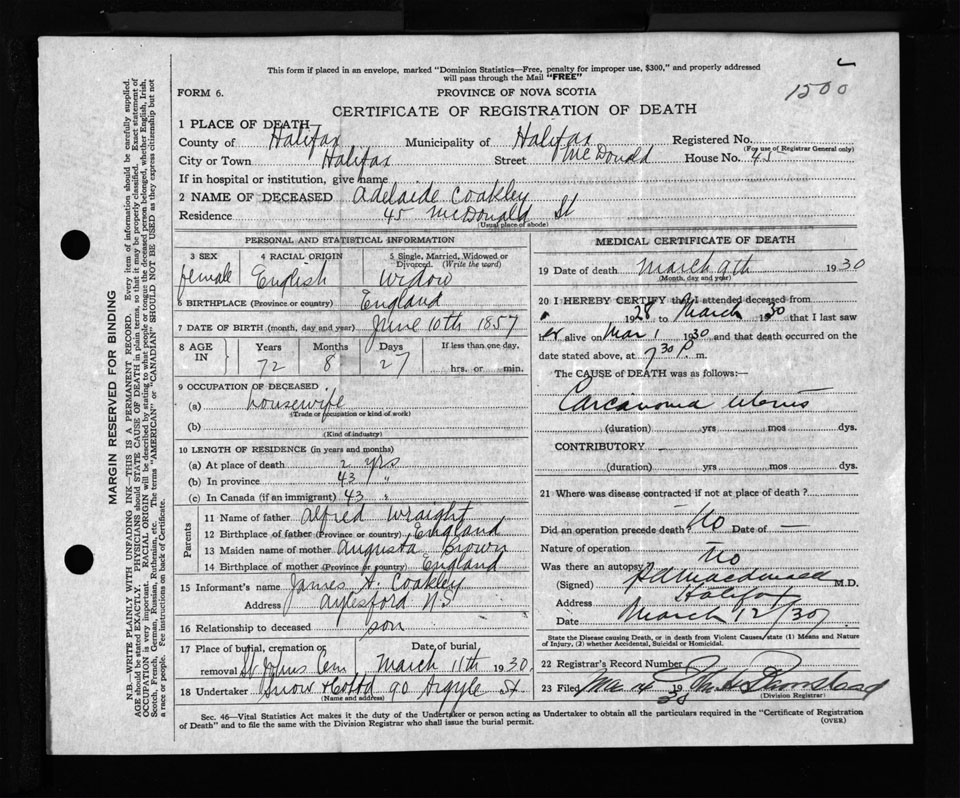 This form if placed in an envelope, marked "Dominion Statistics—Free, penalty for improper use, $300," and properly addressed
will pass through the Mail "FREE"
1500
FORM 6.
PROVINCE OF NOVA SCOTIA
CERTIFICATE OF REGISTRATION OF DEATH
1 PLACE OF DEATH
County of Halifax Municipality of Halifax Registered No.
(For use of Registrar General only)
City or Town Halifax Street McDonald House No. 45
If in hospital or institution, give name
2 NAME OF DECEASED Adelaide Coakley
Residence 45 McDonald St
(Usual place of abode)
PERSONAL AND STATISTICAL INFORMATION
3 SEX female
4 RACIAL ORIGIN English
5 Single, Married, Widowed or Divorced. (Write the word) Widow
6 BIRTHPLACE (Province or country) England
7 DATE OF BIRTH (month, day and year) June 10th 1857
8 AGE IN
Years Months Days If less than one day.
72 8 27 hrs. or min.
9 OCCUPATION OF DECEASED
(a) housewife
(Trade or occupation or kind of work)
(b)
(Kind of industry)
10 LENGTH OF RESIDENCE (in years and months)
(a) At place of death 2 yrs
(b) In province 43 "
(c) In Canada (if an immigrant) 43 "
Parents
11 Name of father Alfred Wraight
12 Birthplace of father (Province or country) England
13 Maiden name of mother Augusta Brown
14 Birthplace of mother (Province or country) England
15 Informant's name James A. Coakley
Address Aylesford N.S
16 Relationship to deceased son
17 Place of burial, cremation or removal St Johns Cem
Date of burial March 11th 1930
18 Undertaker Snow & Co Ltd 90 Argyle St
(Name and address)
MEDICAL CERTIFICATE OF DEATH
19 Date of death March 9th 1930
(Month, day and year)
20 I HEREBY CERTIFY that I attended deceased from
1928 to March 1930 that I last saw
her alive on Mar 1 1930 and that death occurred on the
date stated above, at 7 30 P. m.
The CAUSE of DEATH was as follows:—
Carcanoma uterus
(duration) yrs mos dys.
CONTRIBUTORY
(duration) yrs mos dys.
21 Where was disease contracted if not at place of death?
Did an operation precede death? No Date of —
Nature of operation
Was there an autopsy? No
(Signed) Macdonald M.D.
Address Halifax
Date March 12/30
State the Disease causing Death, or in death from Violent Causes, state (1) Means and Nature
of Injury, (2) whether Accidental, Suicidal or Homicidal.
22 Registrar's Record Number
23 Filed Mar 14 1930
(Division Registrar)
Sec. 46—Vital Statistics Act makes it the duty of the Undertaker or person acting as Undertaker to obtain all the particulars required in the "Certificate of Registration
of Death" and to file the same with the Division Registrar who shall issue the burial permit.
(OVER)
MARGIN RESERVED FOR BINDING
N.B.—WRITE PLAINLY WITH UNFADING INK—THIS IS A PERMANENT RECORD. Every item of information should be carefully supplied.
AGE should be stated EXACTLY. PHYSICIANS should STATE CAUSE OF DEATH in plain terms, so that it may be properly classified. Exact statement of
OCCUPATION is very important. RACIAL ORIGIN will be described by stating to what people or tongue the deceased person belonged, whether English, Irish,
Scotch, French, German, Russian, Ruthenian, etc. The terms "AMERICAN" or "CANADIAN" SHOULD NOT BE USED as they express citizenship but not
a race or people. Fee instructions on back of Certificate.